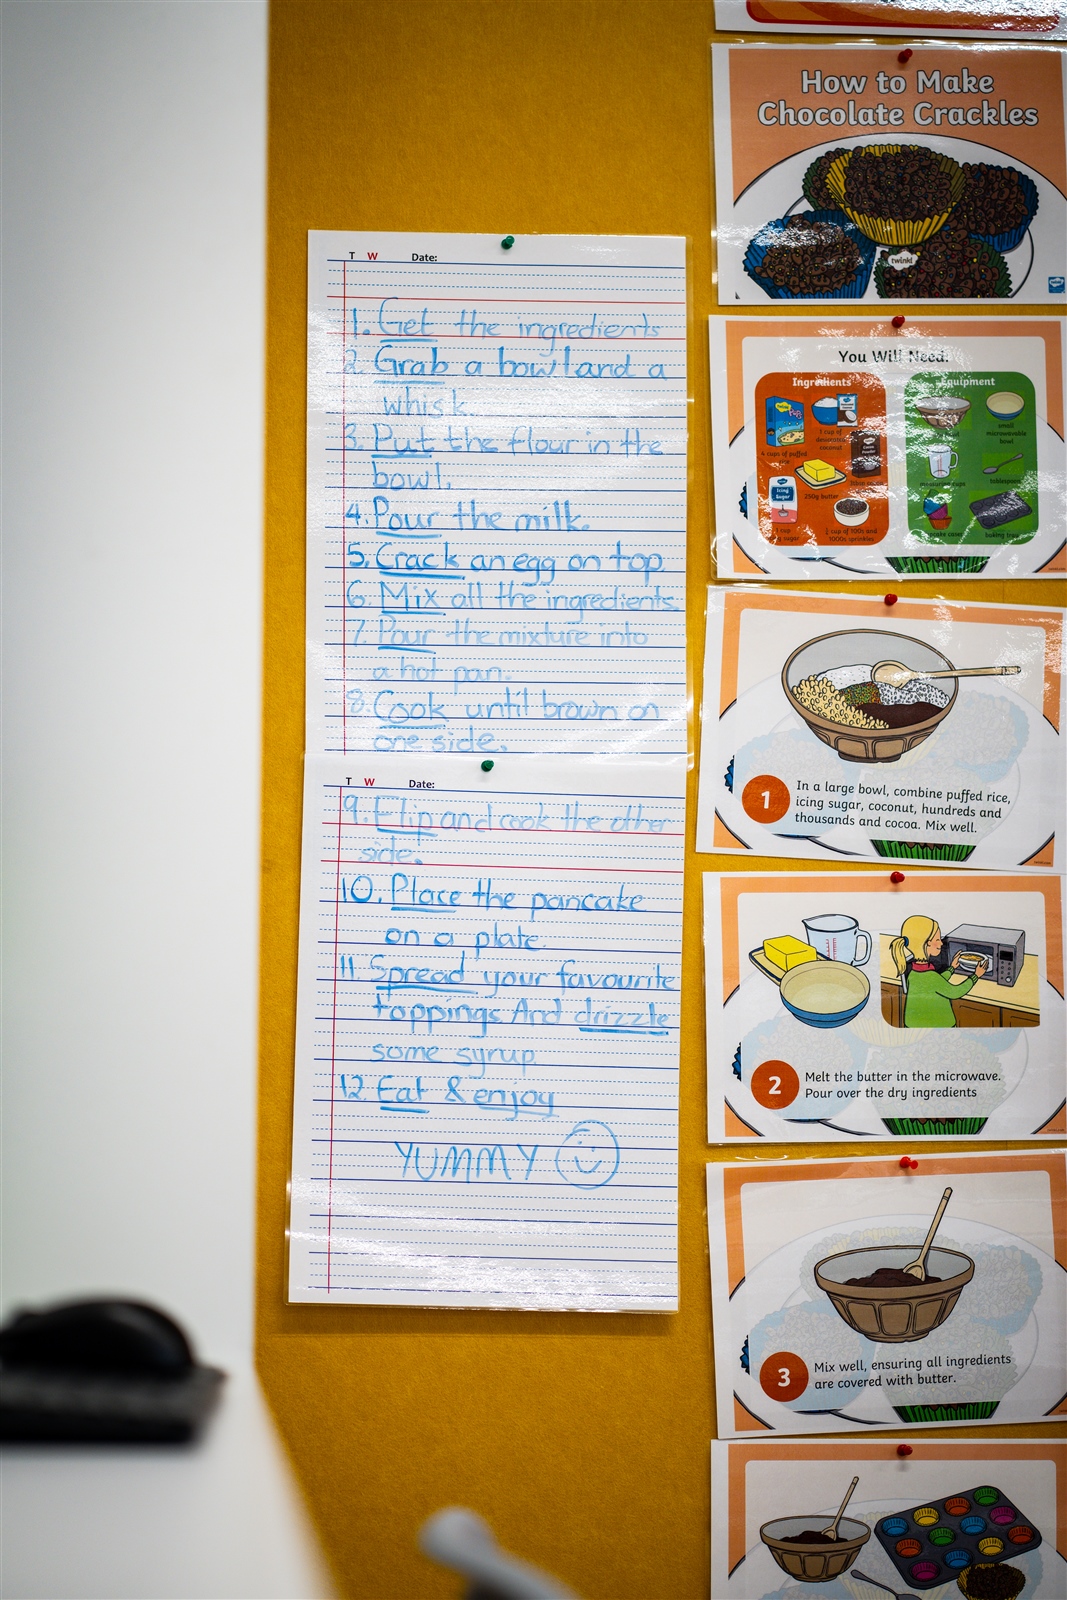 T W Date:
1. Get the ingredients
2. Grab a bowl and a
whisk.
3. Put the flour in the
bowl.
4. Pour the milk.
5. Crack an egg on top.
6. Mix all the ingredients.
7. Pour the mixture into
a hot pan.
8. Cook until brown on
one side.
T W Date:
9. Flip and cook the other
side.
10. Place the pancake
on a plate.
11. Spread your favourite
toppings And drizzle
some syrup.
12. Eat & enjoy
YUMMY
How to Make
Chocolate Crackles
twinkl
You Will Need:
Ingredients
1 cup of
desiccated
coconut
4 cups of puffed
rice
250g butter
Icing
Sugar
1 cup
sugar
½ cup of 100s and
1000s sprinkles
Equipment
small
microwavable
bowl
measuring cups
tablespoon
baking tray
1
In a large bowl, combine puffed rice,
icing sugar, coconut, hundreds and
thousands and cocoa. Mix well.
2
Melt the butter in the microwave.
Pour over the dry ingredients
3
Mix well, ensuring all ingredients
are covered with butter.